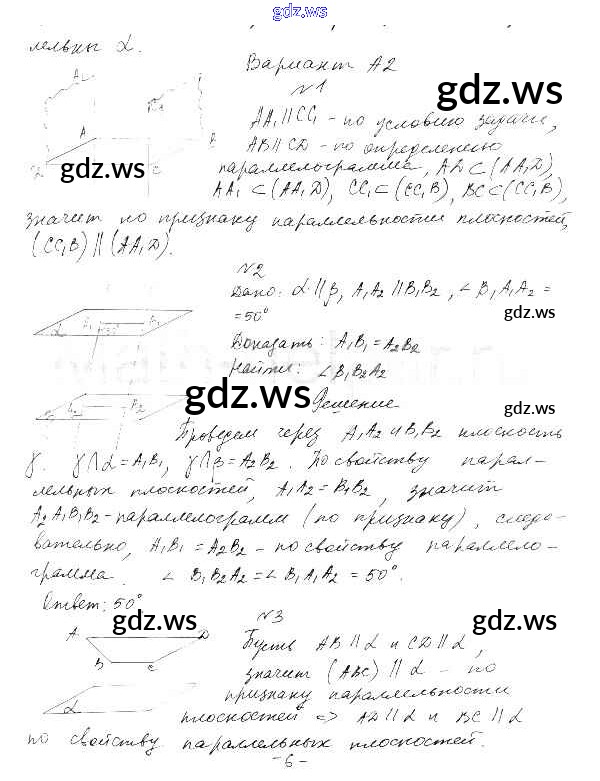 gdz.ws
лельны α.
Вариант А2
N1
AA₁ ∥ CC₁ - по условию задачи,
AB ∥ CD - по определению
параллелограмма, AD ⊂ (AA₁D),
AA₁ ⊂ (AA₁D), CC₁ ⊂ (CC₁B), BC ⊂ (CC₁B),
значит по признаку параллельности плоскостей,
(CC₁B) ∥ (AA₁D).
N2
Дано: α ∥ β, A₁A₂ ∥ B₁B₂, ∠ B₁A₁A₂ =
= 50°
Доказать: A₁B₁ = A₂B₂
Найти: ∠ B₁B₂A₂
Решение
Проведем через A₁A₂ и B₁B₂ плоскость
γ. γ ∩ α = A₁B₁, γ ∩ β = A₂B₂. По свойству парал-
лельных плоскостей, A₁A₂ = B₁B₂, значит
A₂A₁B₁B₂ - параллелограмм (по признаку), следо-
вательно, A₁B₁ = A₂B₂ - по свойству параллело-
грамма. ∠ B₁B₂A₂ = ∠ B₁A₁A₂ = 50°.
Ответ: 50°
N3
Пусть AB ∥ α и CD ∥ α,
значит (ABC) ∥ α - по
признаку параллельности
плоскостей => AD ∥ α и BC ∥ α
по свойству параллельных плоскостей.
- 6 -
A D
B C
α
gdz.ws
gdz.ws
gdz.ws
gdz.ws
gdz.ws
gdz.ws
gdz.ws
gdz.ws
gdz.ws